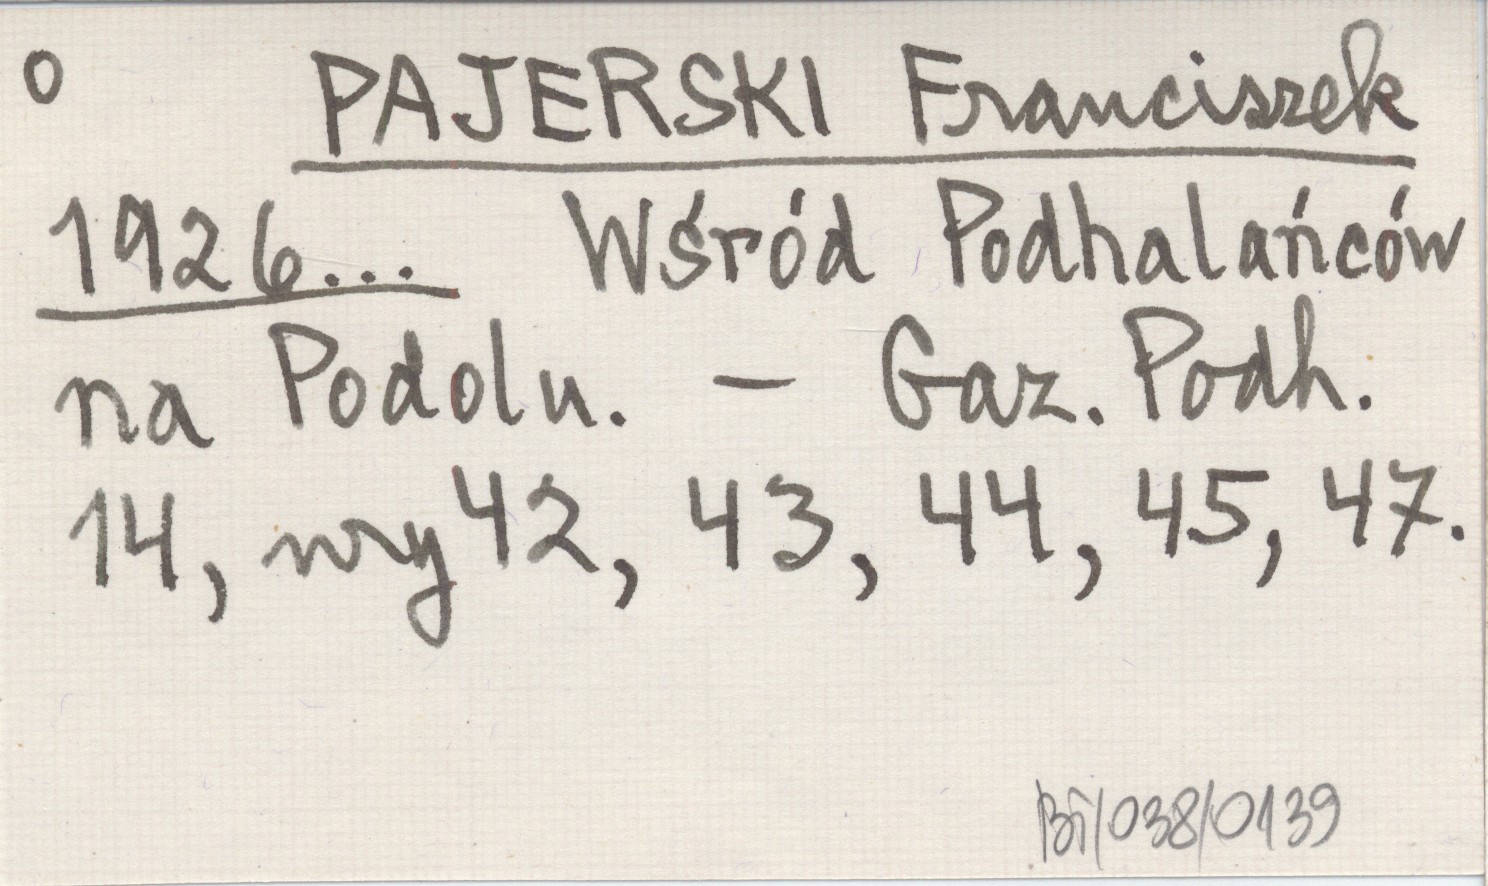 o PAJERSKI Franciszek
1926... Wśród Podhalańców
na Podolu. — Gaz. Podh.
14, nry 42, 43, 44, 45, 47.
/038/0139